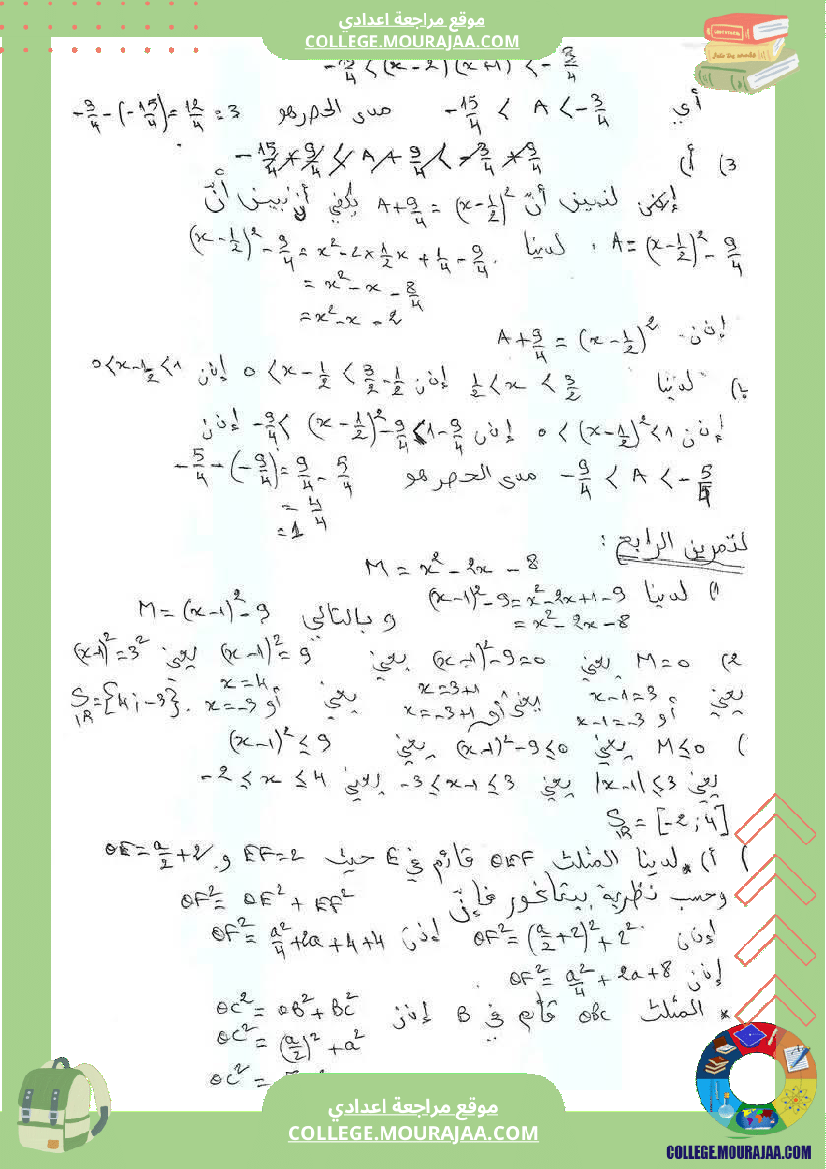 موقع مراجعة اعدادي
COLLEGE.MOURAJAA.COM
-15/4 < (x-2)(x+1) < -3/4
أي -15/4 < A < -3/4 مدى الحصر هو -3/4 - (-15/4) = 12/4 = 3
3) أ)
لنبين أنّ A + 9/4 = (x - 1/2)² يكفي أن نبين أنّ
A = (x - 1/2)² - 9/4 ، لدينا (x - 1/2)² - 9/4 = x² - 2 × 1/2 x + 1/4 - 9/4
= x² - x - 8/4
= x² - x - 2
إذن A + 9/4 = (x - 1/2)²
ب) لدينا 1/2 < x < 3/2 إذن 0 < x - 1/2 < 3/2 - 1/2 إذن 0 < x - 1/2 < 1
إذن 0 < (x - 1/2)² < 1 إذن -9/4 < (x - 1/2)² - 9/4 < 1 - 9/4 إذن
-9/4 < A < -5/4 مدى الحصر هو -5/4 - (-9/4) = 9/4 - 5/4
= 4/4
= 1
لتمرين الرابع :
M = x² - 2x - 8
1) لدينا (x-1)² - 9 = x² - 2x + 1 - 9 وبالتالي M = (x-1)² - 9
= x² - 2x - 8
2) M = 0 يعني (x-1)² - 9 = 0 يعني (x-1)² = 9 يعني (x-1)² = 3²
يعني x-1 = 3 أو x-1 = -3 يعني x = 3+1 أو x = -3+1 يعني x = 4 أو x = -3 . S_IR = {4 ; -3}
) M ≤ 0 يعني (x-1)² - 9 ≤ 0 يعني (x-1)² ≤ 9
يعني |x-1| ≤ 3 يعني -3 ≤ x-1 ≤ 3 يعني -2 ≤ x ≤ 4
S_IR = [-2 ; 4]
) أ) * لدينا المثلث OEF قائم في E حيث EF = 2 و OE = a/2 + 2
وحسب نظرية بيتاغور فإنّ OF² = OE² + EF²
إذن OF² = (a/2 + 2)² + 2² إذن OF² = a²/4 + 2a + 4 + 4
إذن OF² = a²/4 + 2a + 8
* المثلث OBC قائم في B إذن OC² = OB² + BC²
OC² = (a/2)² + a²
OC² =
موقع مراجعة اعدادي
COLLEGE.MOURAJAA.COM
COLLEGE.MOURAJAA.COM